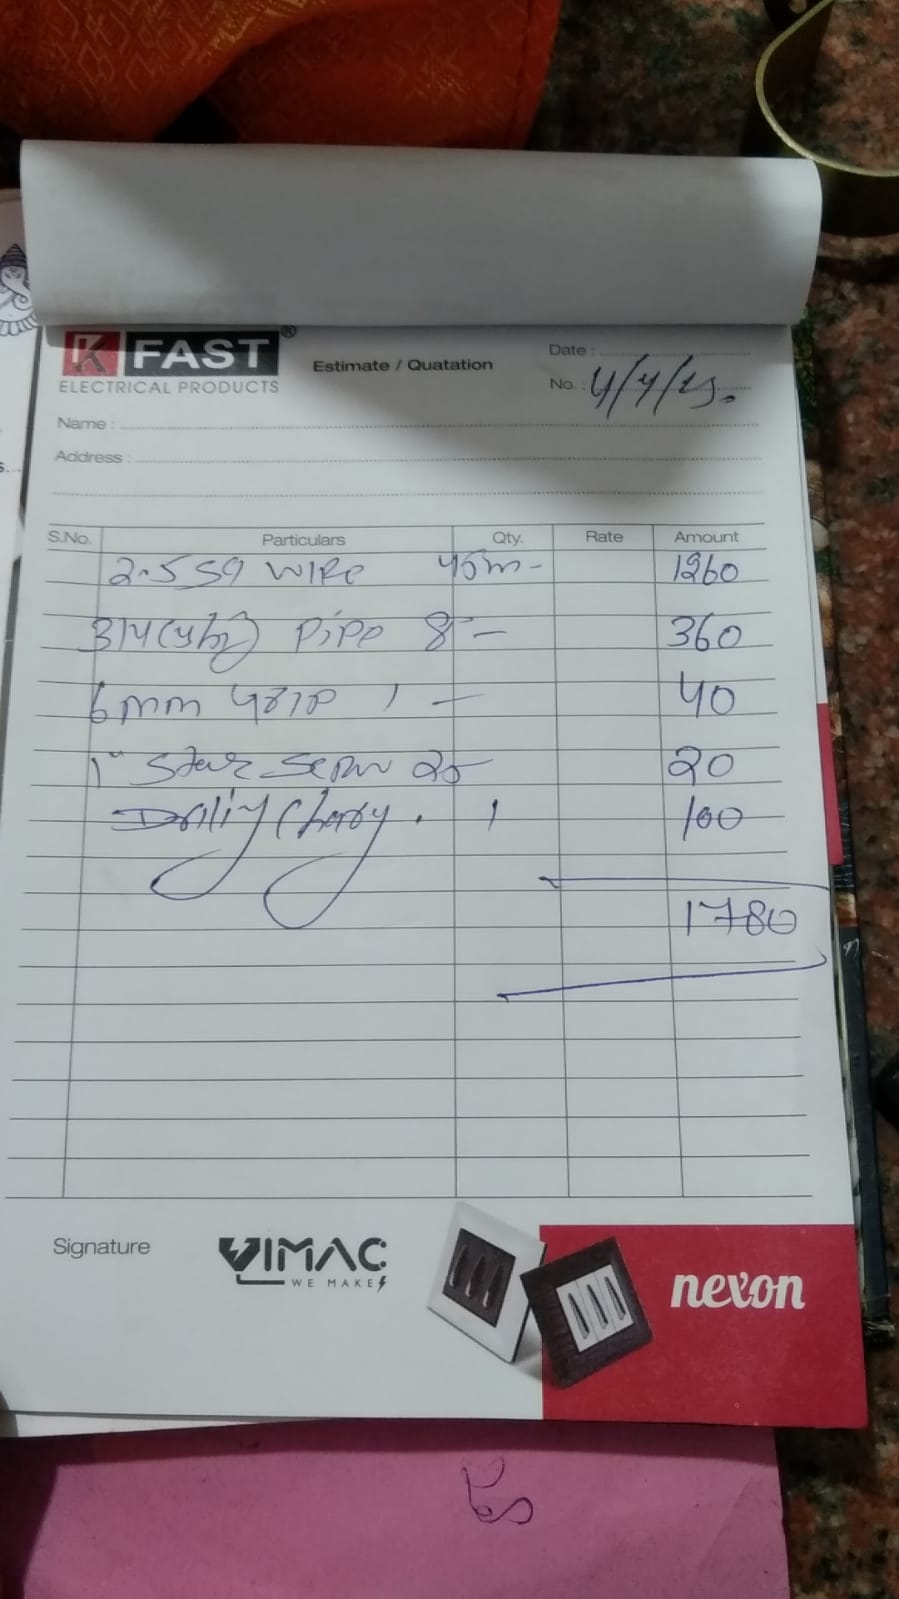 K FAST ®
ELECTRICAL PRODUCTS
Estimate / Quatation
Date :
No. : 4/4/25.
Name :
Address :
S.No. Particulars Qty. Rate Amount
2.5 sq WIRe 45m - 1260
3/4 Pipe 8 - 360
6mm 1 - 40
1" Star Scrw 25 20
Drilling Charg. 1 100
1780
Signature
VIMAC
WE MAKE
nexon